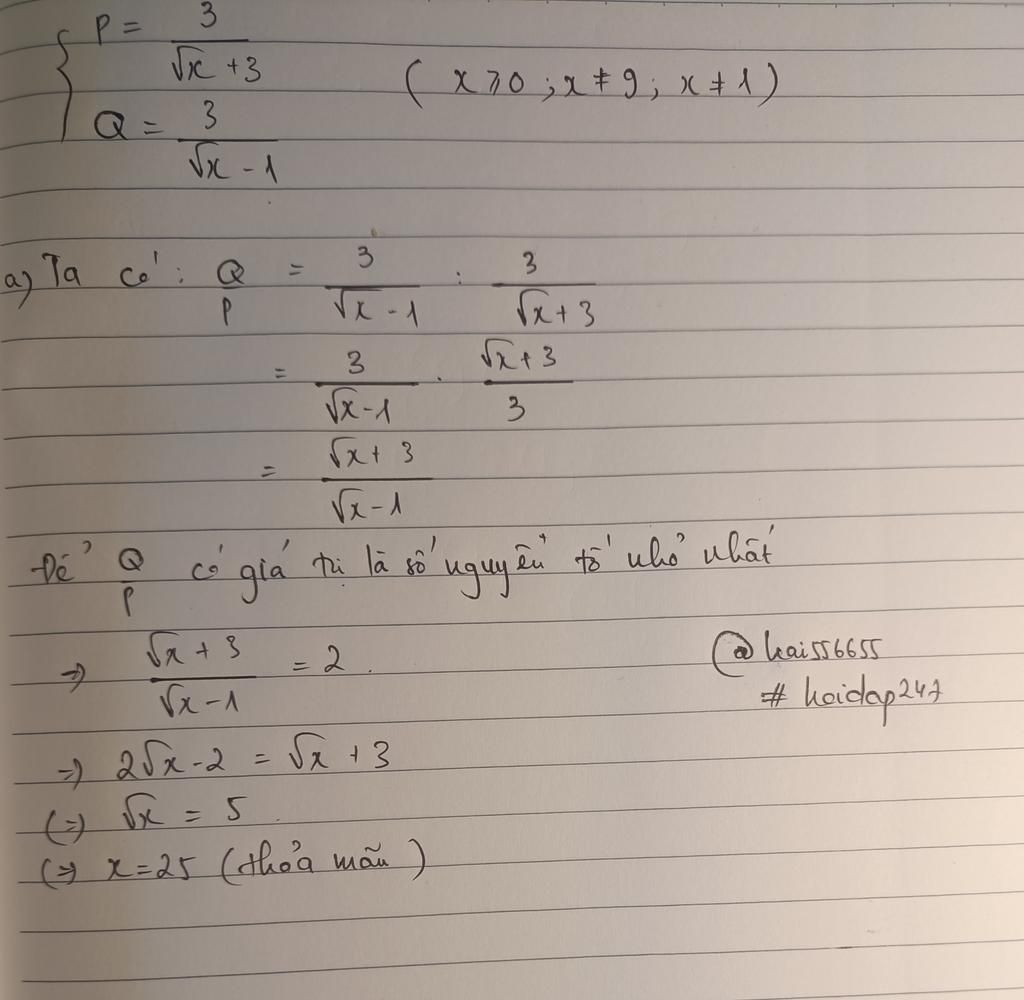 P = 3/(√x + 3)
(x ⩾ 0 ; x ≠ 9 ; x ≠ 1)
Q = 3/(√x - 1)
a) Ta có : Q/P = 3/(√x - 1) : 3/(√x + 3)
= 3/(√x - 1) . (√x + 3)/3
= (√x + 3)/(√x - 1)
Để Q/P có giá trị là số nguyên tố nhỏ nhất
=> (√x + 3)/(√x - 1) = 2.
@hai556655
# hoidap247
=> 2√x - 2 = √x + 3
(=) √x = 5
(=> x = 25 (thỏa mãn)